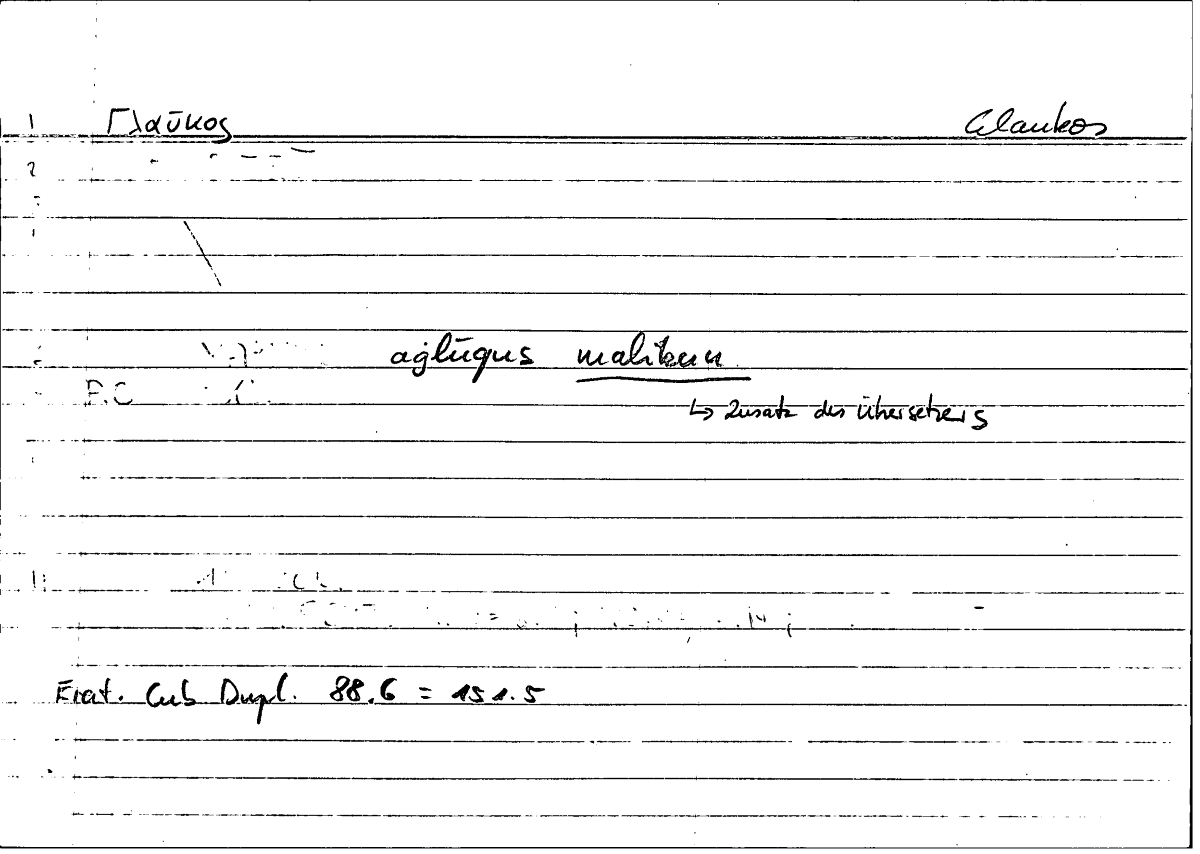 1 Γλαῦκος Glaukos
2
aġlūqus malikun
↳ Zusatz des Übersetzers
Erat. Cub Dupl. 88.6 = 151.5